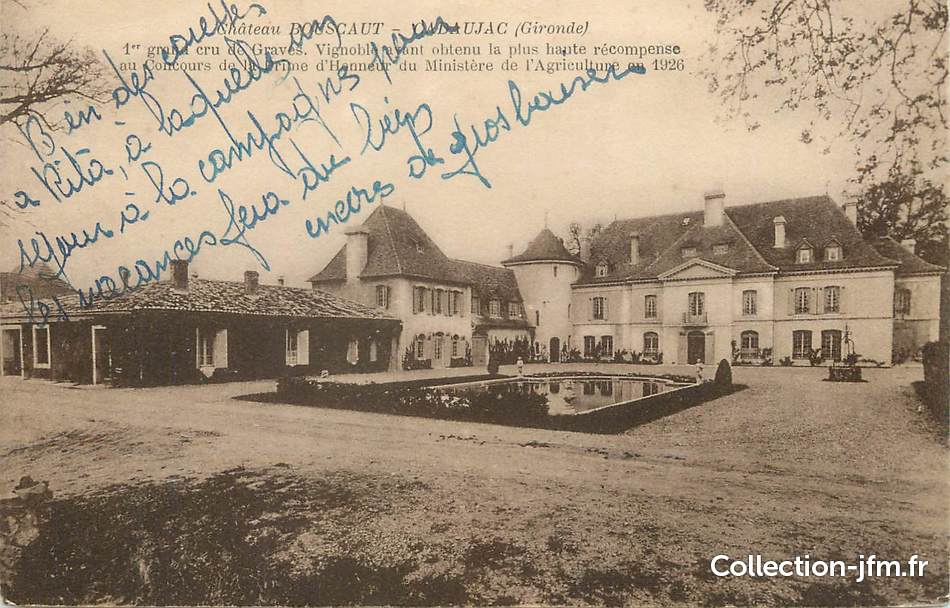 Château BOUSCAUT - CADAUJAC (Gironde)
1er grand cru de Graves. Vignoble ayant obtenu la plus haute récompense
au Concours de la Prime d'Honneur du Ministère de l'Agriculture en 1926
Bien des
à Rita, à laquelle un
séjour à la campagne pour
les vacances fera du bien
encore de gros baisers
Collection-jfm.fr